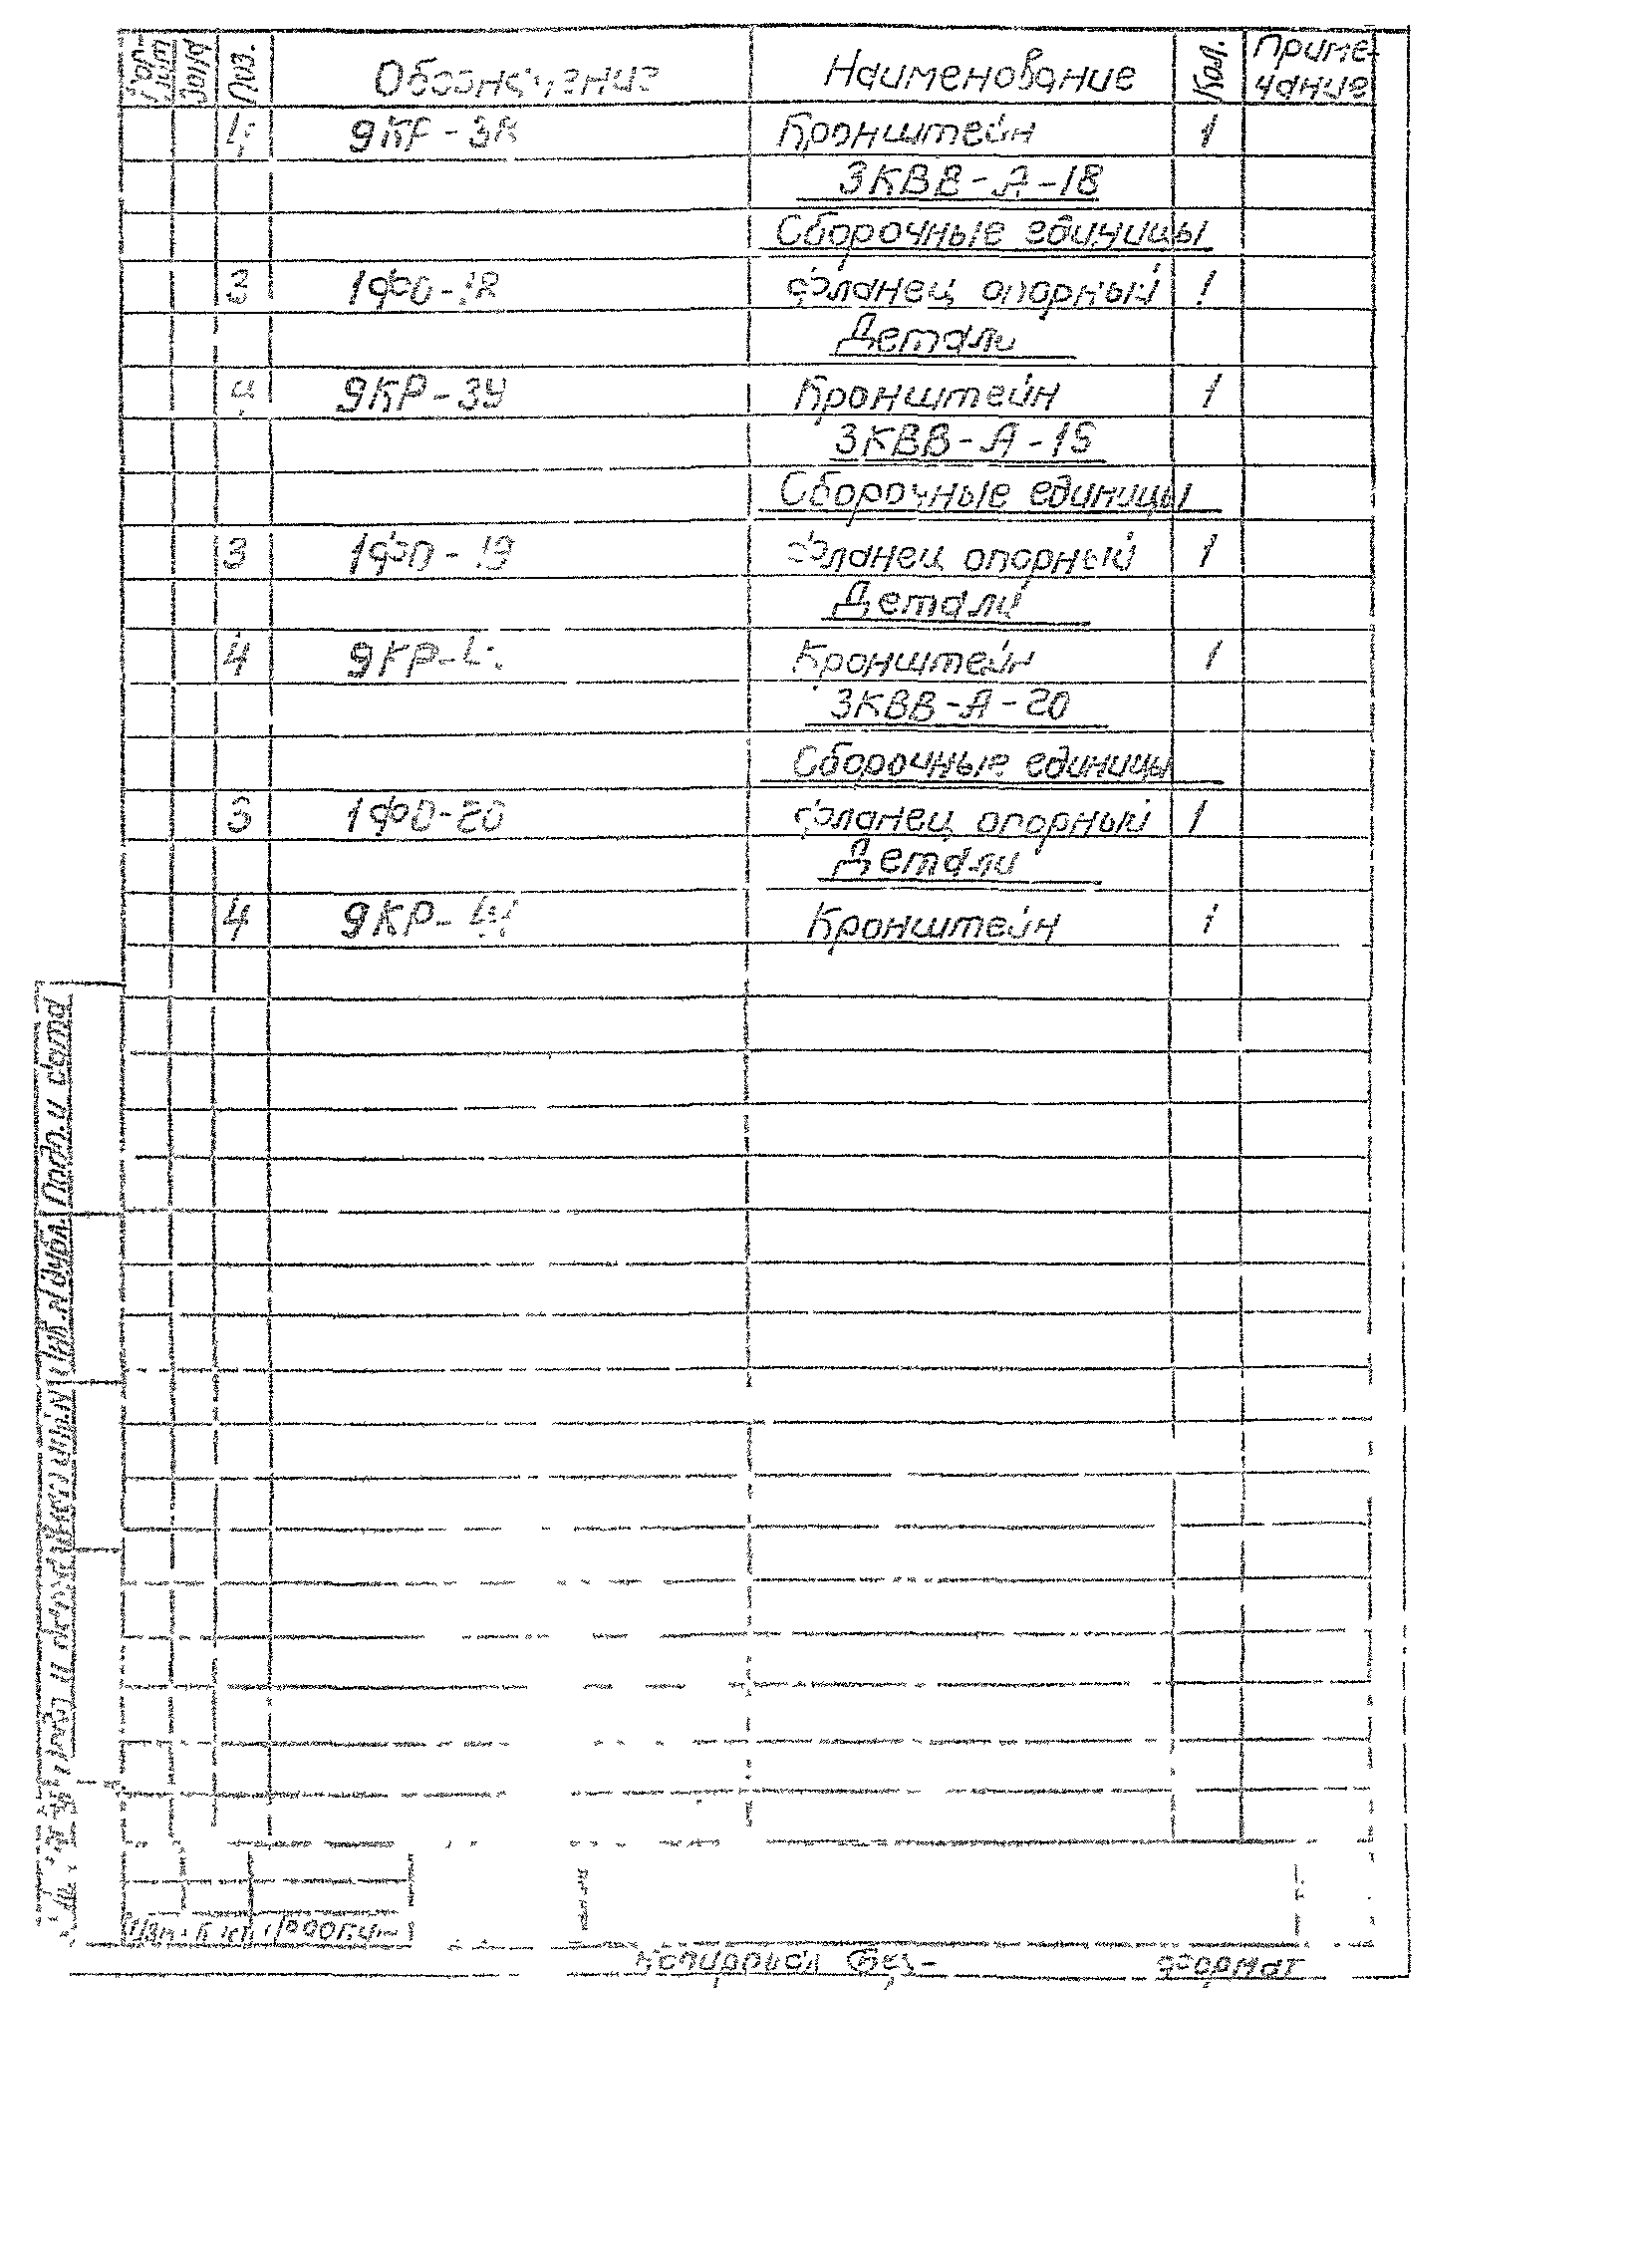 Формат Зона Поз. Обозначение Наименование Кол. Приме-
чание
4 Кронштейн 1
3КВВ-А-18
Сборочные единицы
3 1ФО-18 Фланец опорный 1
Детали
4 9КР-39 Кронштейн 1
3КВВ-А-19
Сборочные единицы
3 1ФО-19 Фланец опорный 1
Детали
4 Кронштейн 1
3КВВ-А-20
Сборочные единицы
3 1ФО-20 Фланец опорный 1
Детали
4 Кронштейн 1
Подп. и дата
Инв. № дубл.
Подп. и дата
Копировал Формат